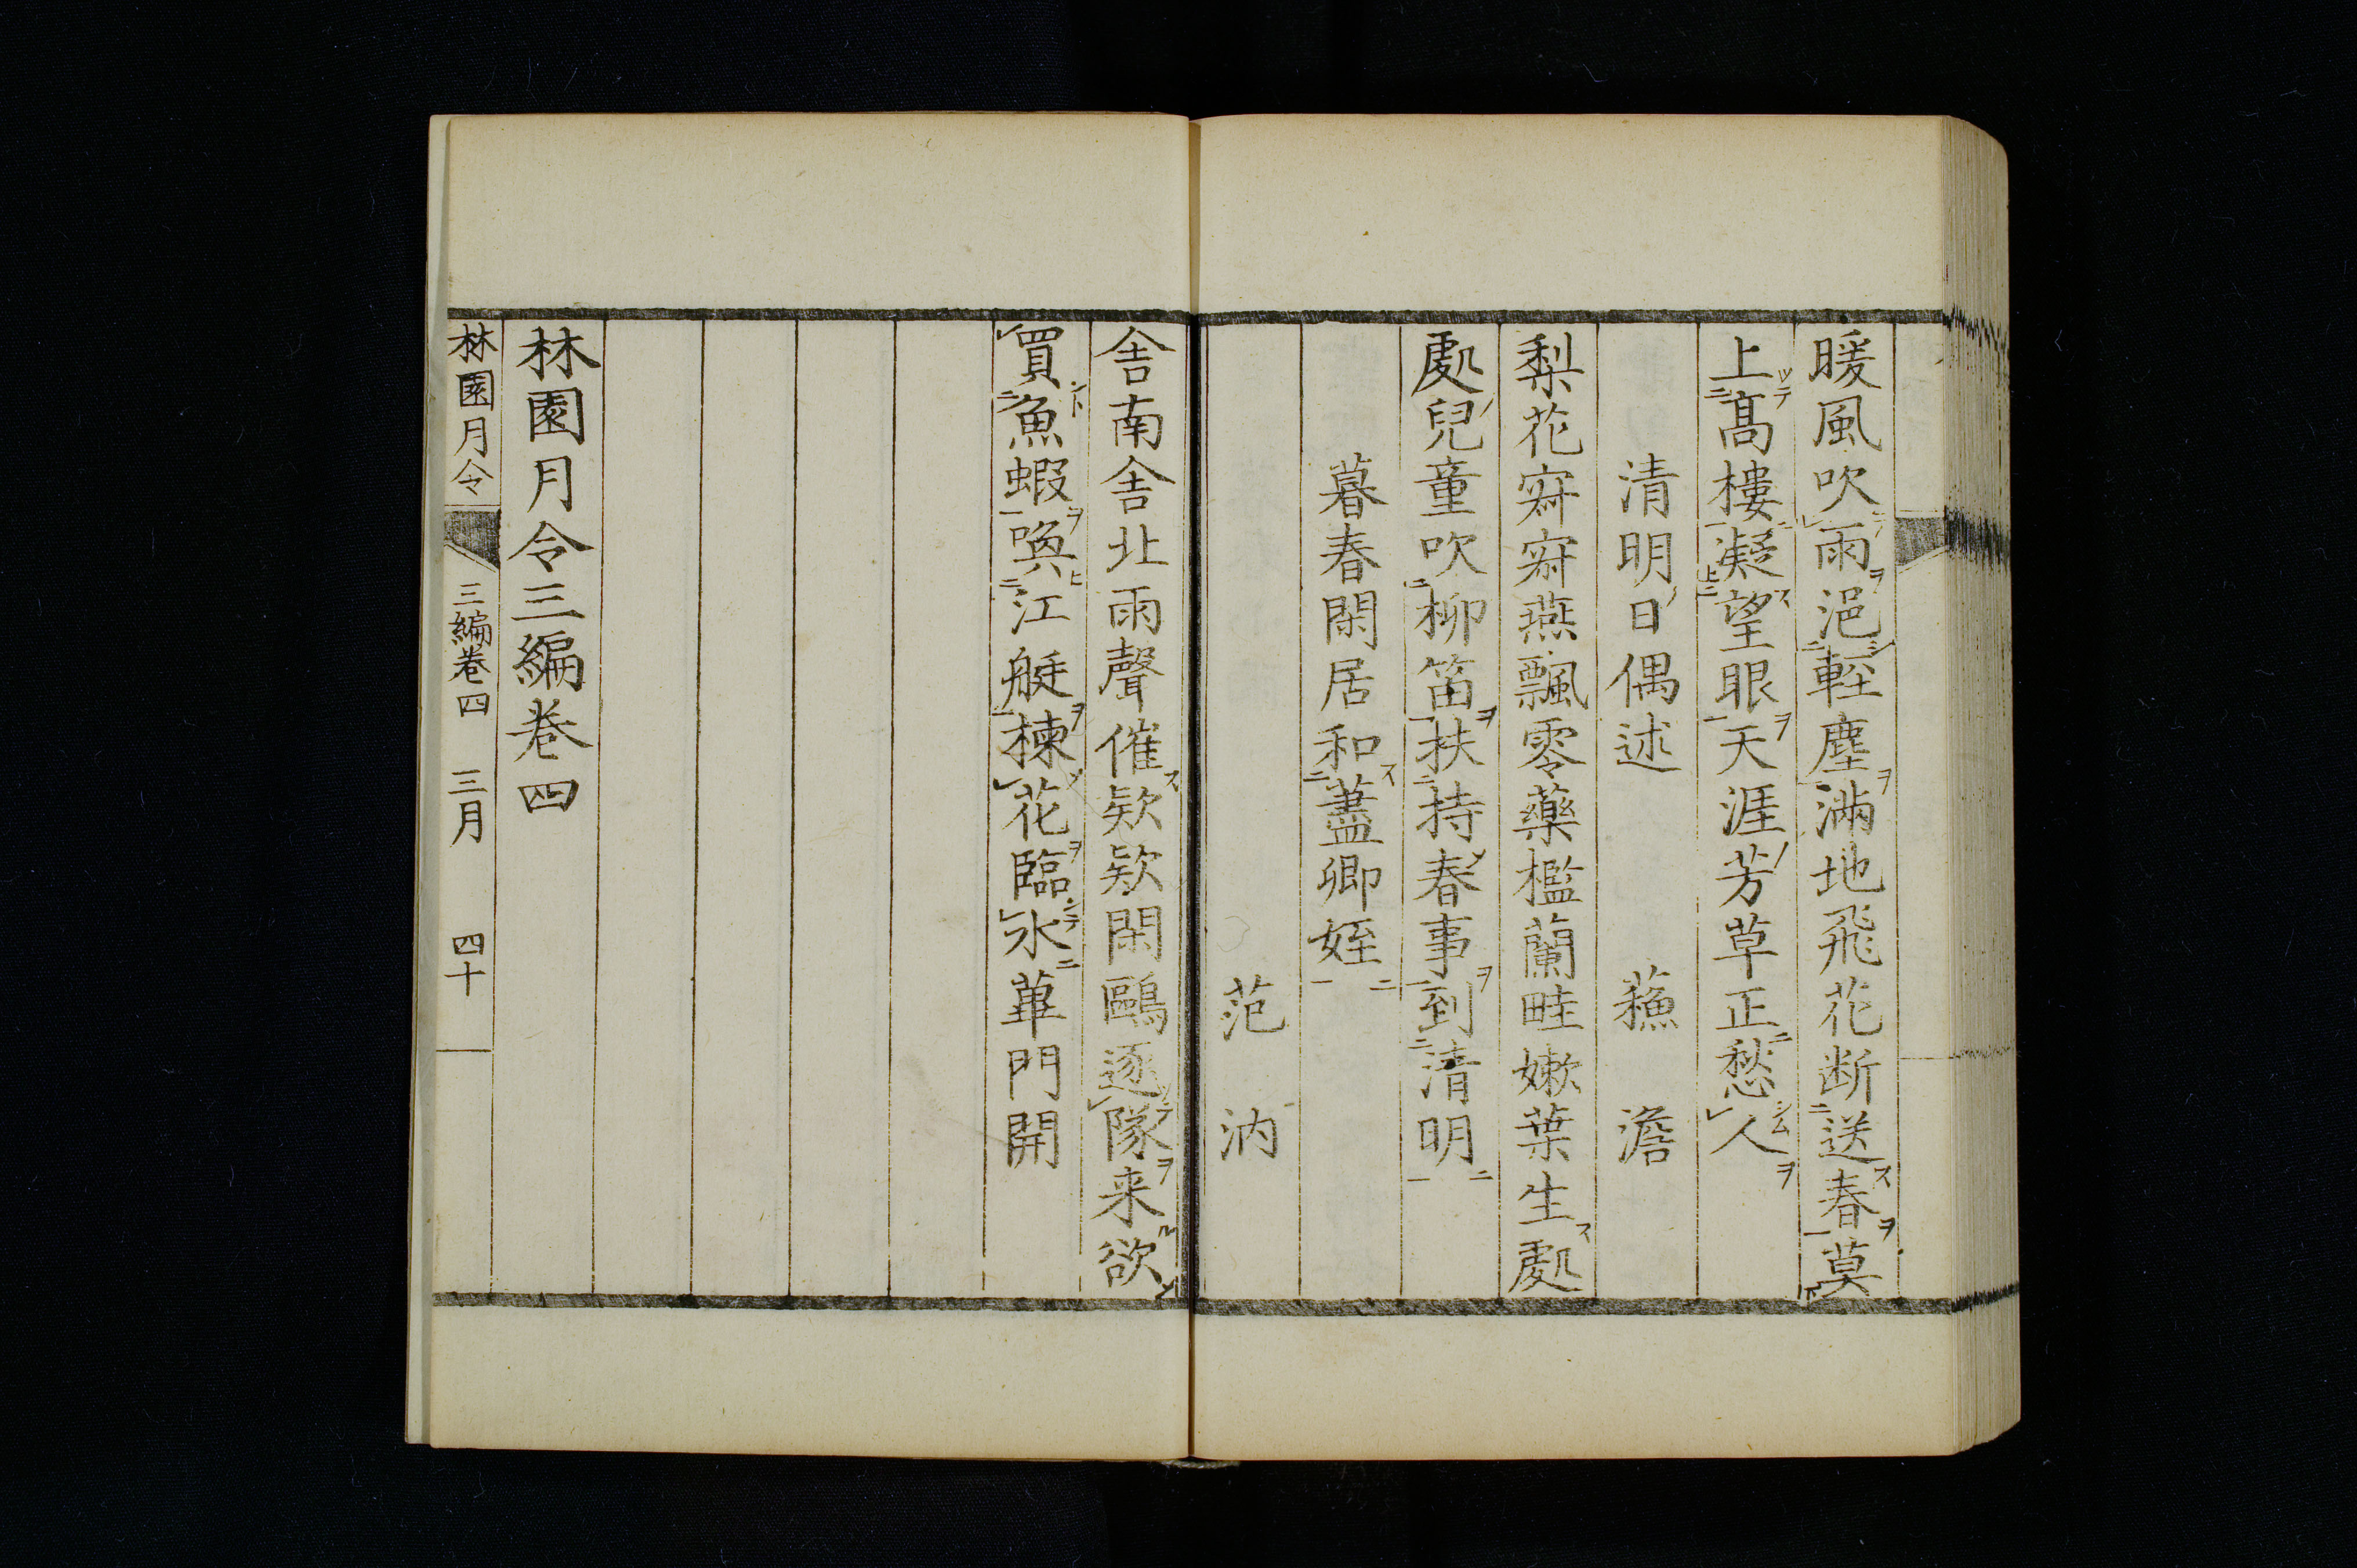 暖風吹雨浥輕塵満地飛花断送春莫
上髙樓凝望眼天涯芳草正愁人
清明日偶述 蘓 澹
梨花寂寂燕飄零藥檻蘭畦嫰葉生處
處兒童吹柳笛扶持春事到清明
暮春閑居和蓋卿姪
范 汭
舎南舎北雨聲催欵欵閑鷗逐隊来欲
買魚蝦喚江艇楝花臨水蓽門開
林園月令三編巻四
林園月令 三編巻四 三月 四十